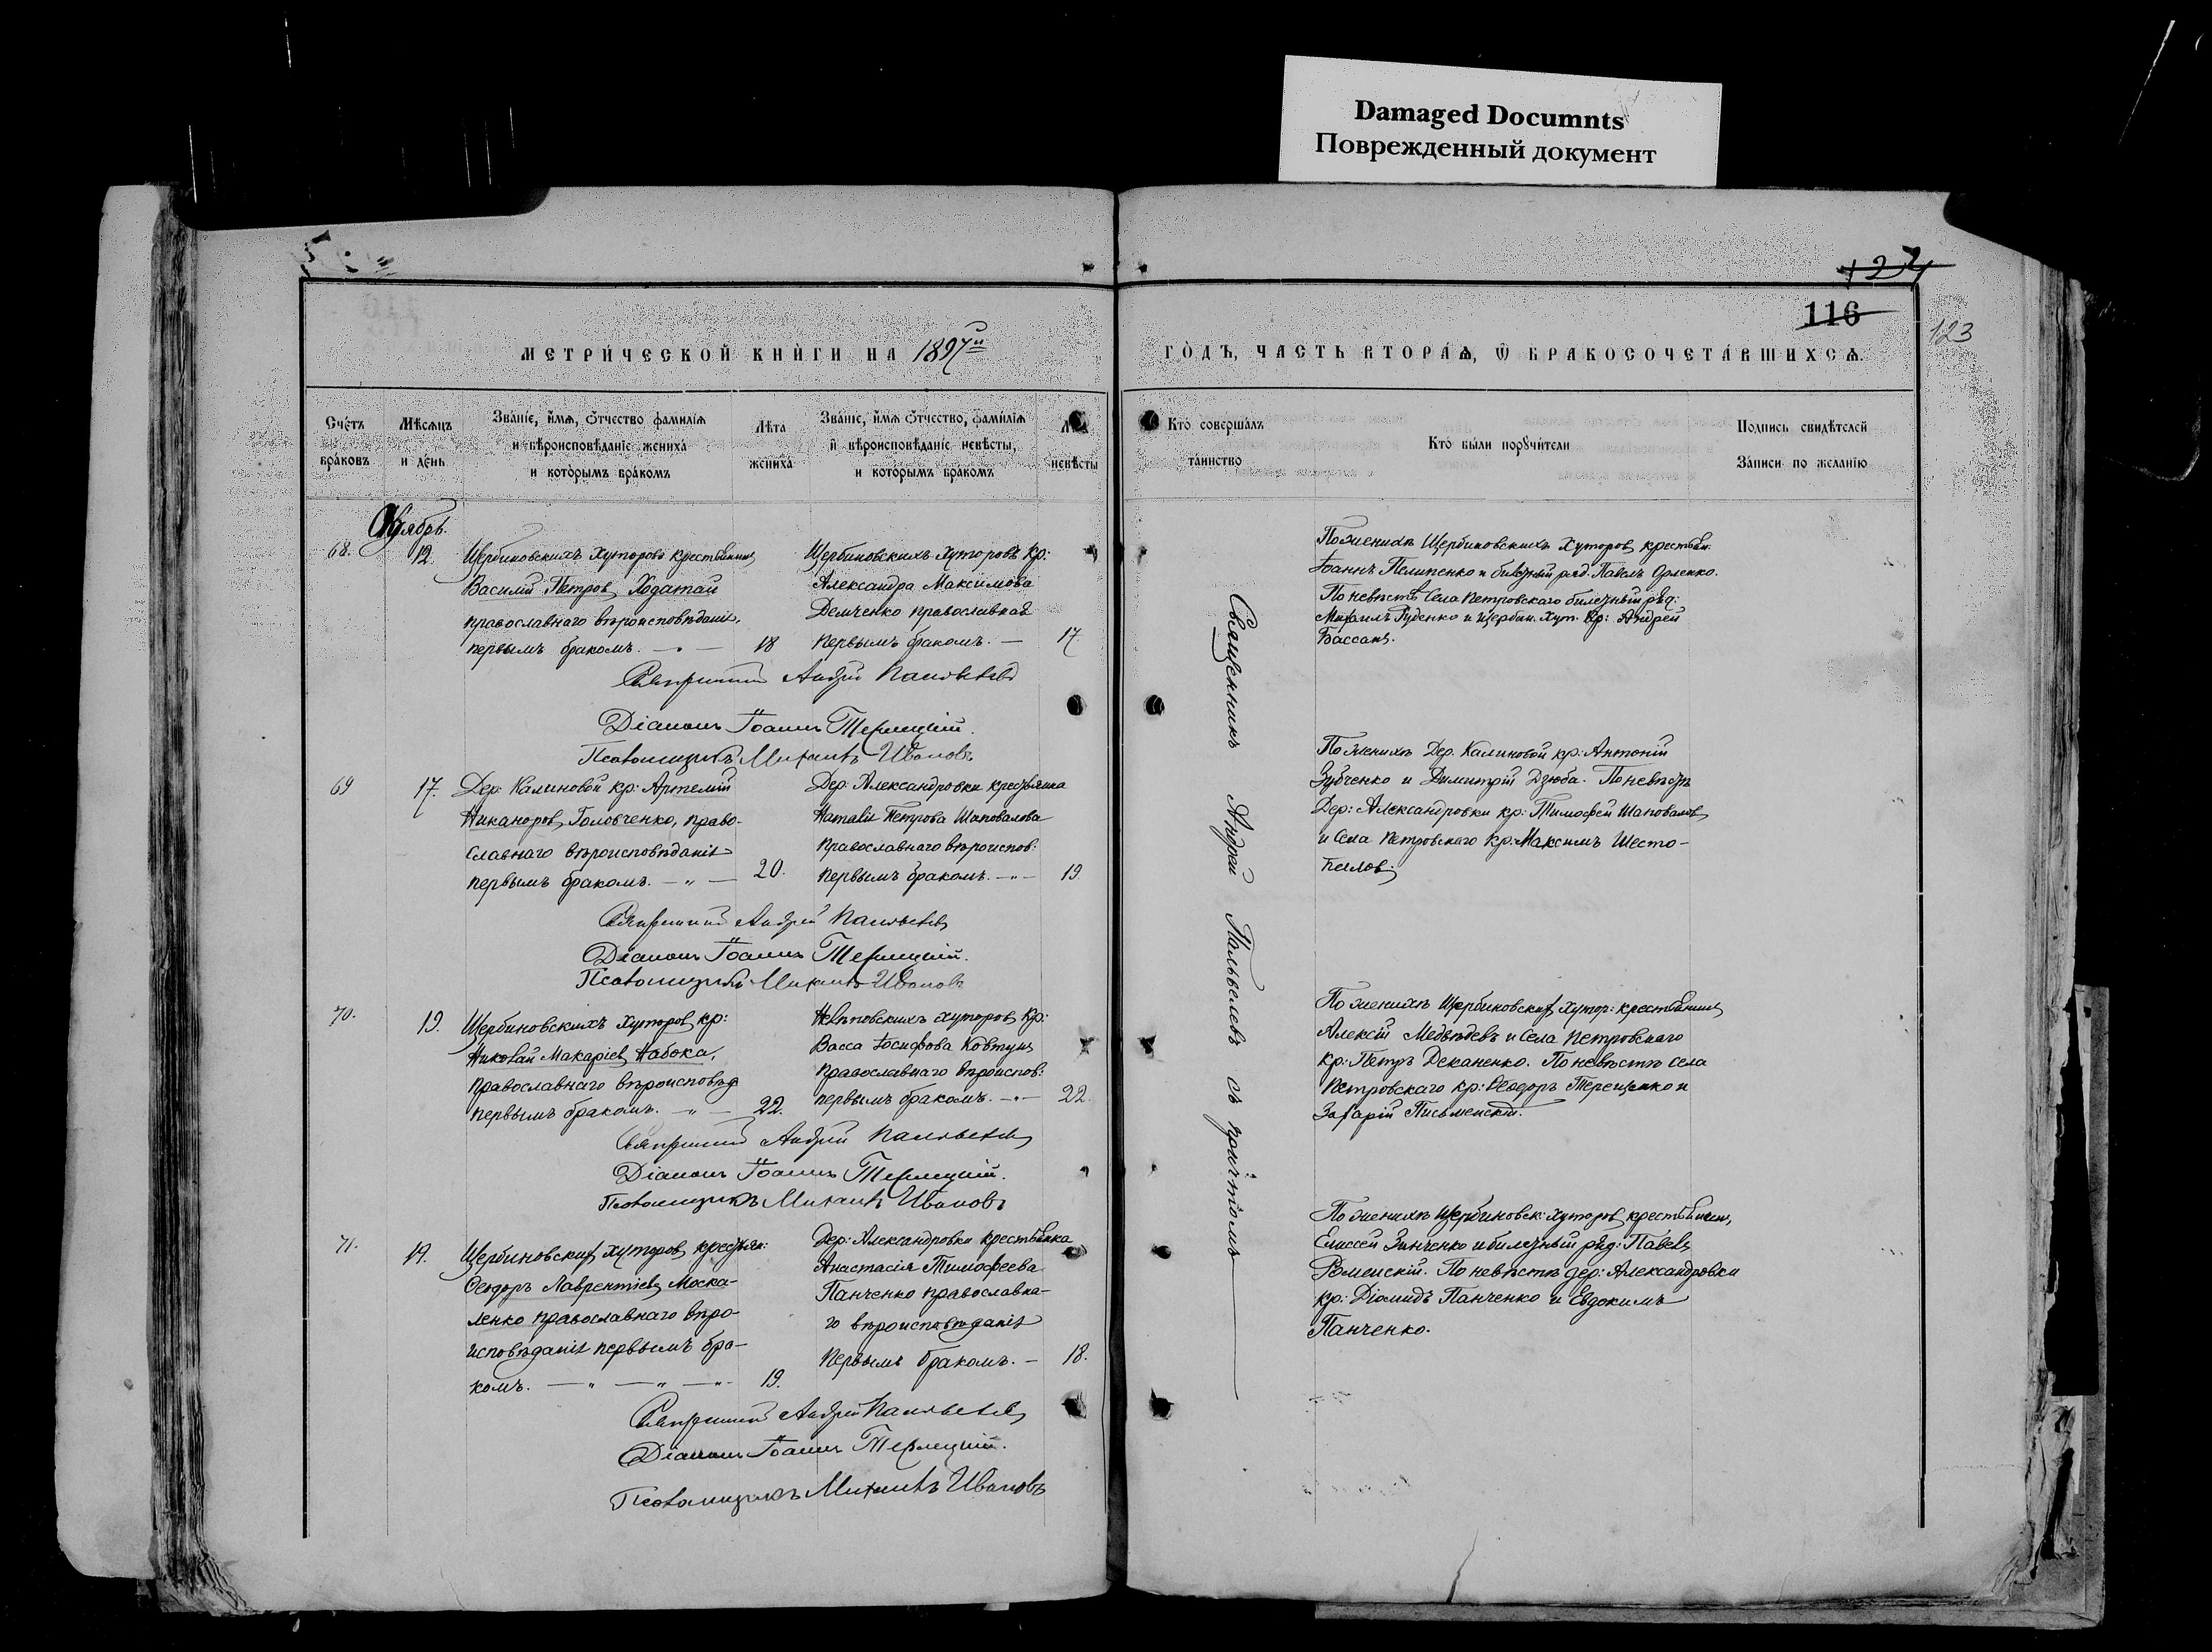 Damaged Documnts
Поврежденный документ
124
116
123
МЕТРИЧЕСКОЙ КНИГИ НА 1897й
ГОДЪ, ЧАСТЬ ВТОРАѦ, Ѿ БРАКОСОЧЕТАВШИХСѦ.
Счетъ браковъ
Мѣсяцъ и день
Званіе, имя, отчество фамилія и вѣроисповѣданіе жениха и которымъ бракомъ
Лѣта жениха
Званіе, имя отчество, фамилія и вѣроисповѣданіе невѣсты, и которымъ бракомъ
невѣсты
Кто совершалъ таинство
Кто были поручители
Подпись свидѣтелей Записи по желанію
Октябрь.
68.
12.
Щербиновскихъ Хуторовъ крестьянинъ
Василій Петровъ Ходатай
православнаго вѣроисповѣданія,
первымъ бракомъ. — 18
Щербиновскихъ Хуторовъ кр:
Александра Максимова
Демченко православная
первымъ бракомъ. — 17.
Священникъ Андрей
Діаконъ Іоаннъ Терлецкій.
Псаломщикъ Михаилъ Ивановъ
69
17.
Дер: Калиновой кр: Артемій
Никаноровъ Головченко, право-
славнаго вѣроисповѣданія
первымъ бракомъ. — „ — 20.
Дер: Александровки крестьянка
Наталія Петрова Шаповалова
православнаго вѣроиспов:
первымъ бракомъ. — „ — 19.
Священникъ Андрей
Діаконъ Іоаннъ Терлецкій.
Псаломщикъ Михаилъ Ивановъ
70.
19.
Щербиновскихъ хуторовъ кр:
Николай Макаріевъ Набока,
православнаго вѣроисповѣд
первымъ бракомъ. — „ — 22.
хуторовъ кр:
Васса Іосифова Ковтунъ
православнаго вѣроиспов:
первымъ бракомъ. — „ — 22.
Священникъ Андрей
Діаконъ Іоаннъ Терлецкій.
Псаломщикъ Михаилъ Ивановъ
71.
19.
Щербиновскихъ хуторовъ крестьян:
Ѳеодоръ Лаврентіевъ Моска-
ленко православнаго вѣро-
исповѣданія первымъ бра-
комъ. — „ — „ — „ — 19.
Дер: Александровки крестьянка
Анастасія Тимофеева
Панченко православна-
го вѣроисповѣданія
первымъ бракомъ. — 18.
Священникъ Андрей
Діаконъ Іоаннъ Терлецкій.
Псаломщикъ Михаилъ Ивановъ
Священникъ Андрей съ причтомъ
По женихѣ Щербиновскихъ Хуторовъ крестьян:
Іоаннъ Пелипенко и билетный ряд. Павелъ Орленко.
По невѣстѣ Села Петровскаго билетный ряд:
Михаилъ Руденко и Щербин. Хут. Кр: Андрей
Бассанъ.
По женихѣ Дер. Калиновой кр: Антоній
Зубченко и Димитрій Дзюба. По невѣстѣ
Дер: Александровки кр: Тимофей Шаповаловъ
и Села Петровскаго Кр: Максимъ Шесто-
паловъ.
По женихѣ Щербиновскихъ Хутор: крестьянинъ
Алексій Медвѣдевъ и Села Петровскаго
кр: Петръ Деканенко. По невѣстѣ села
Петровскаго кр: Ѳеодоръ Терещенко и
Захарій Письменскій.
По женихѣ Щербиновск: хуторовъ крестьянинъ,
Елиссей Зинченко и билетный ряд: Павелъ
Роменскій. По невѣстѣ дер: Александровки
кр: Діомидъ Панченко и Евдокимъ
Панченко.